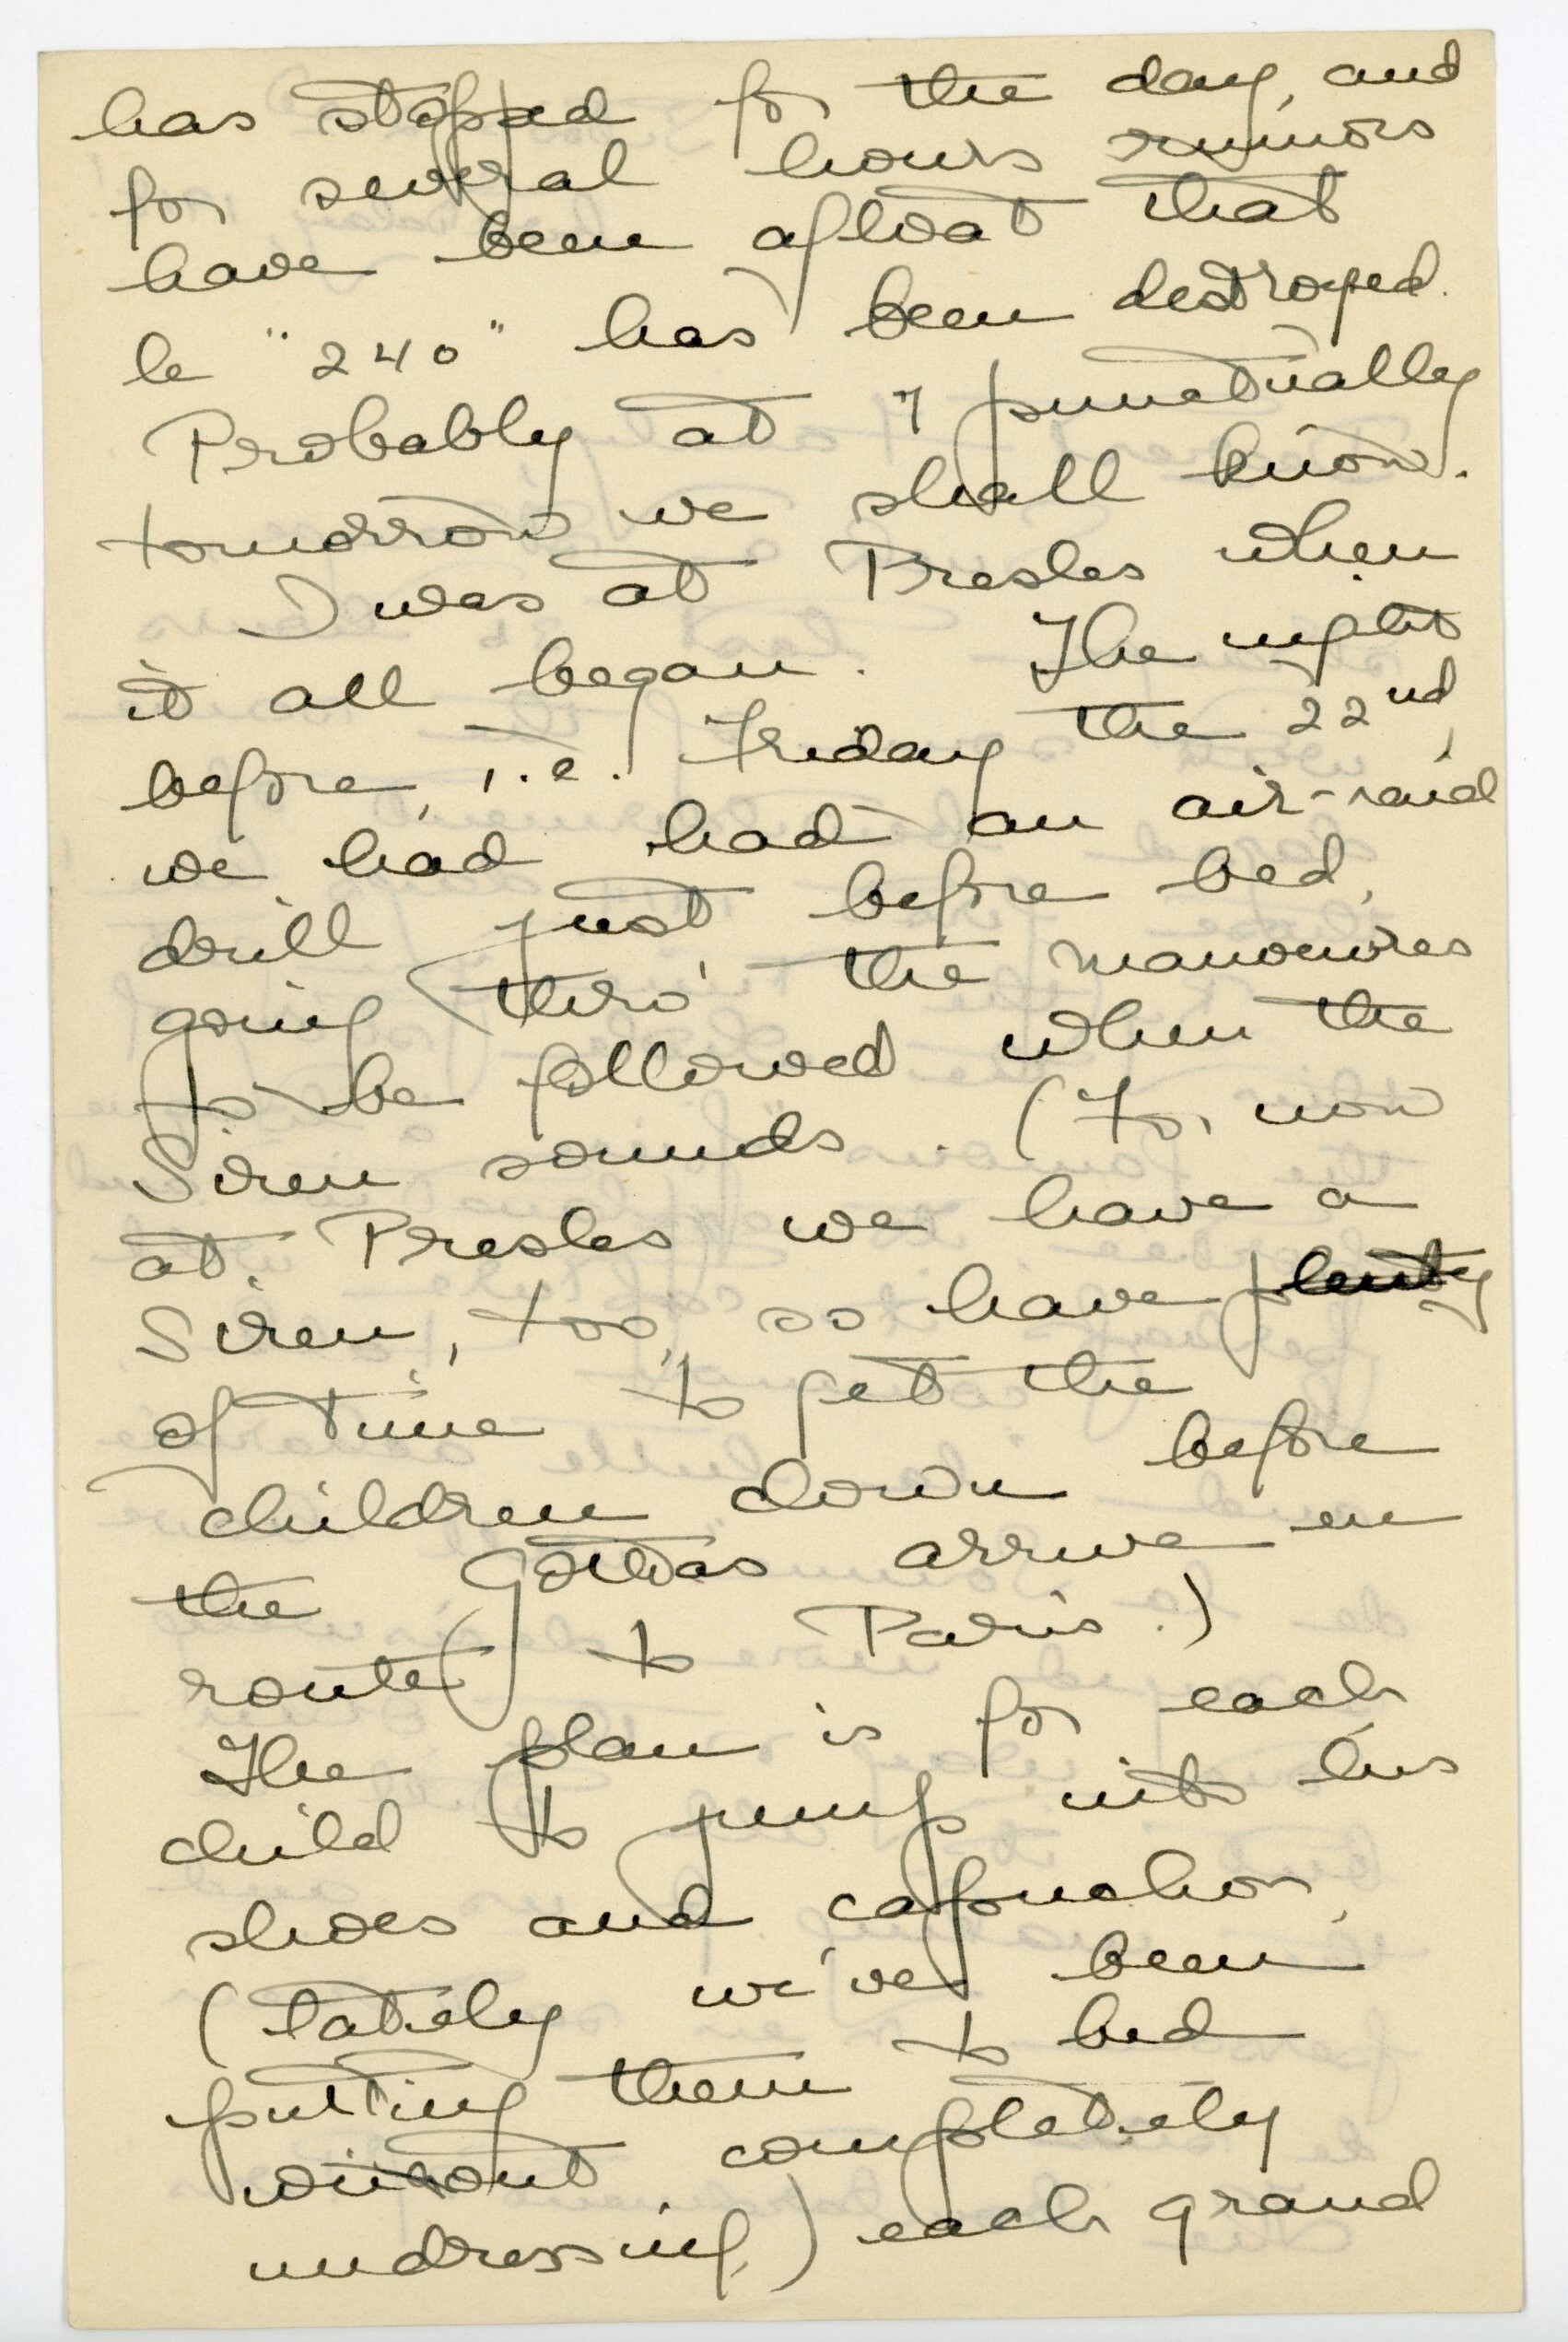 has stopped for the day, and
for several hours rumors
have been afloat that
le "240" has been destroyed.
Probably at 7 punctually
tomorrow we shall know.
I was at Presles when
it all began. The night
before, i.e. Friday the 22nd,
we had had an air-raid
drill just before bed,
going thro' the manouvres
to be followed when the
Siren sounds. (For now
at Presles we have a
Siren, too, so have plenty
of time to get the
children down before
the Gothas arrive en
route to Paris.)
The plan is for each
child to jump into his
shoes and capuchon,
(lately we've been
putting them to bed
without completely
undressing,) each grand